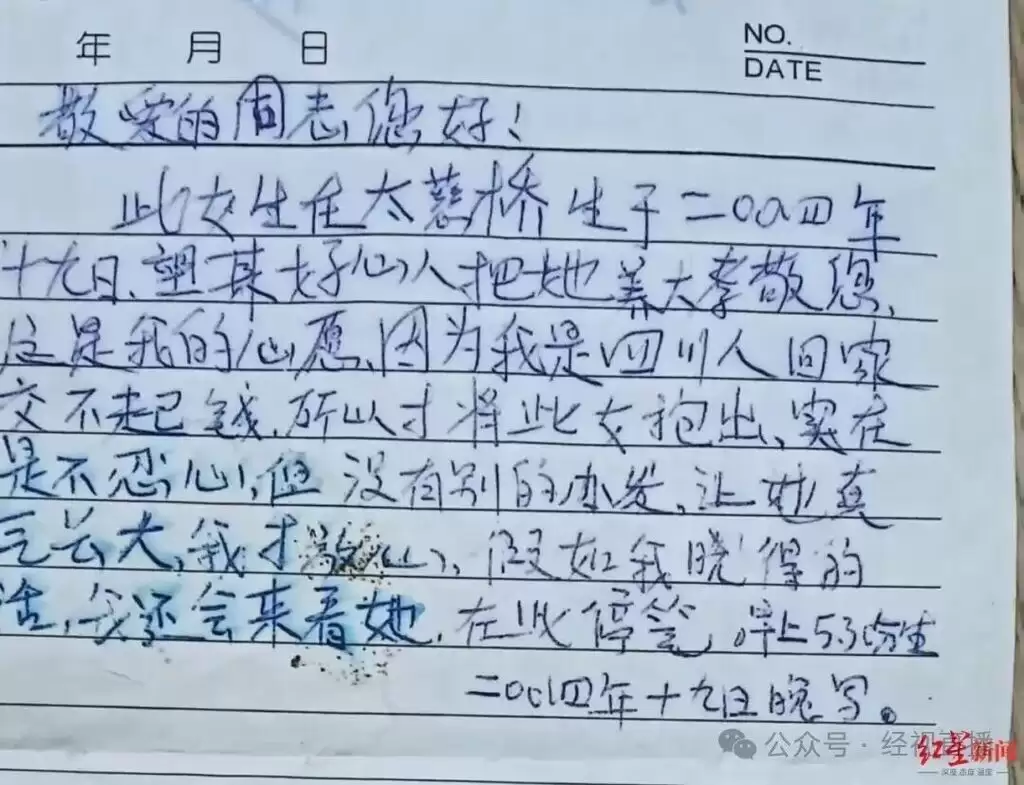 年 月 日
NO.
DATE
敬爱的同志,您好!
此女生在太慈桥生于二00四年
十九日、望某好心人把她养大孝敬您,
这是我的心愿、因为我是四川人回家
交不起 钱,所以才将此女抱出、实在
是不忍心,但没有别的办发,让她真
长大,我才放心、假如我晓得的
话,我还会来看她,在此停笔 早上530分生
二00四年十九日晚写。
公众号·经视直播
红星新闻
深度 态度 温度